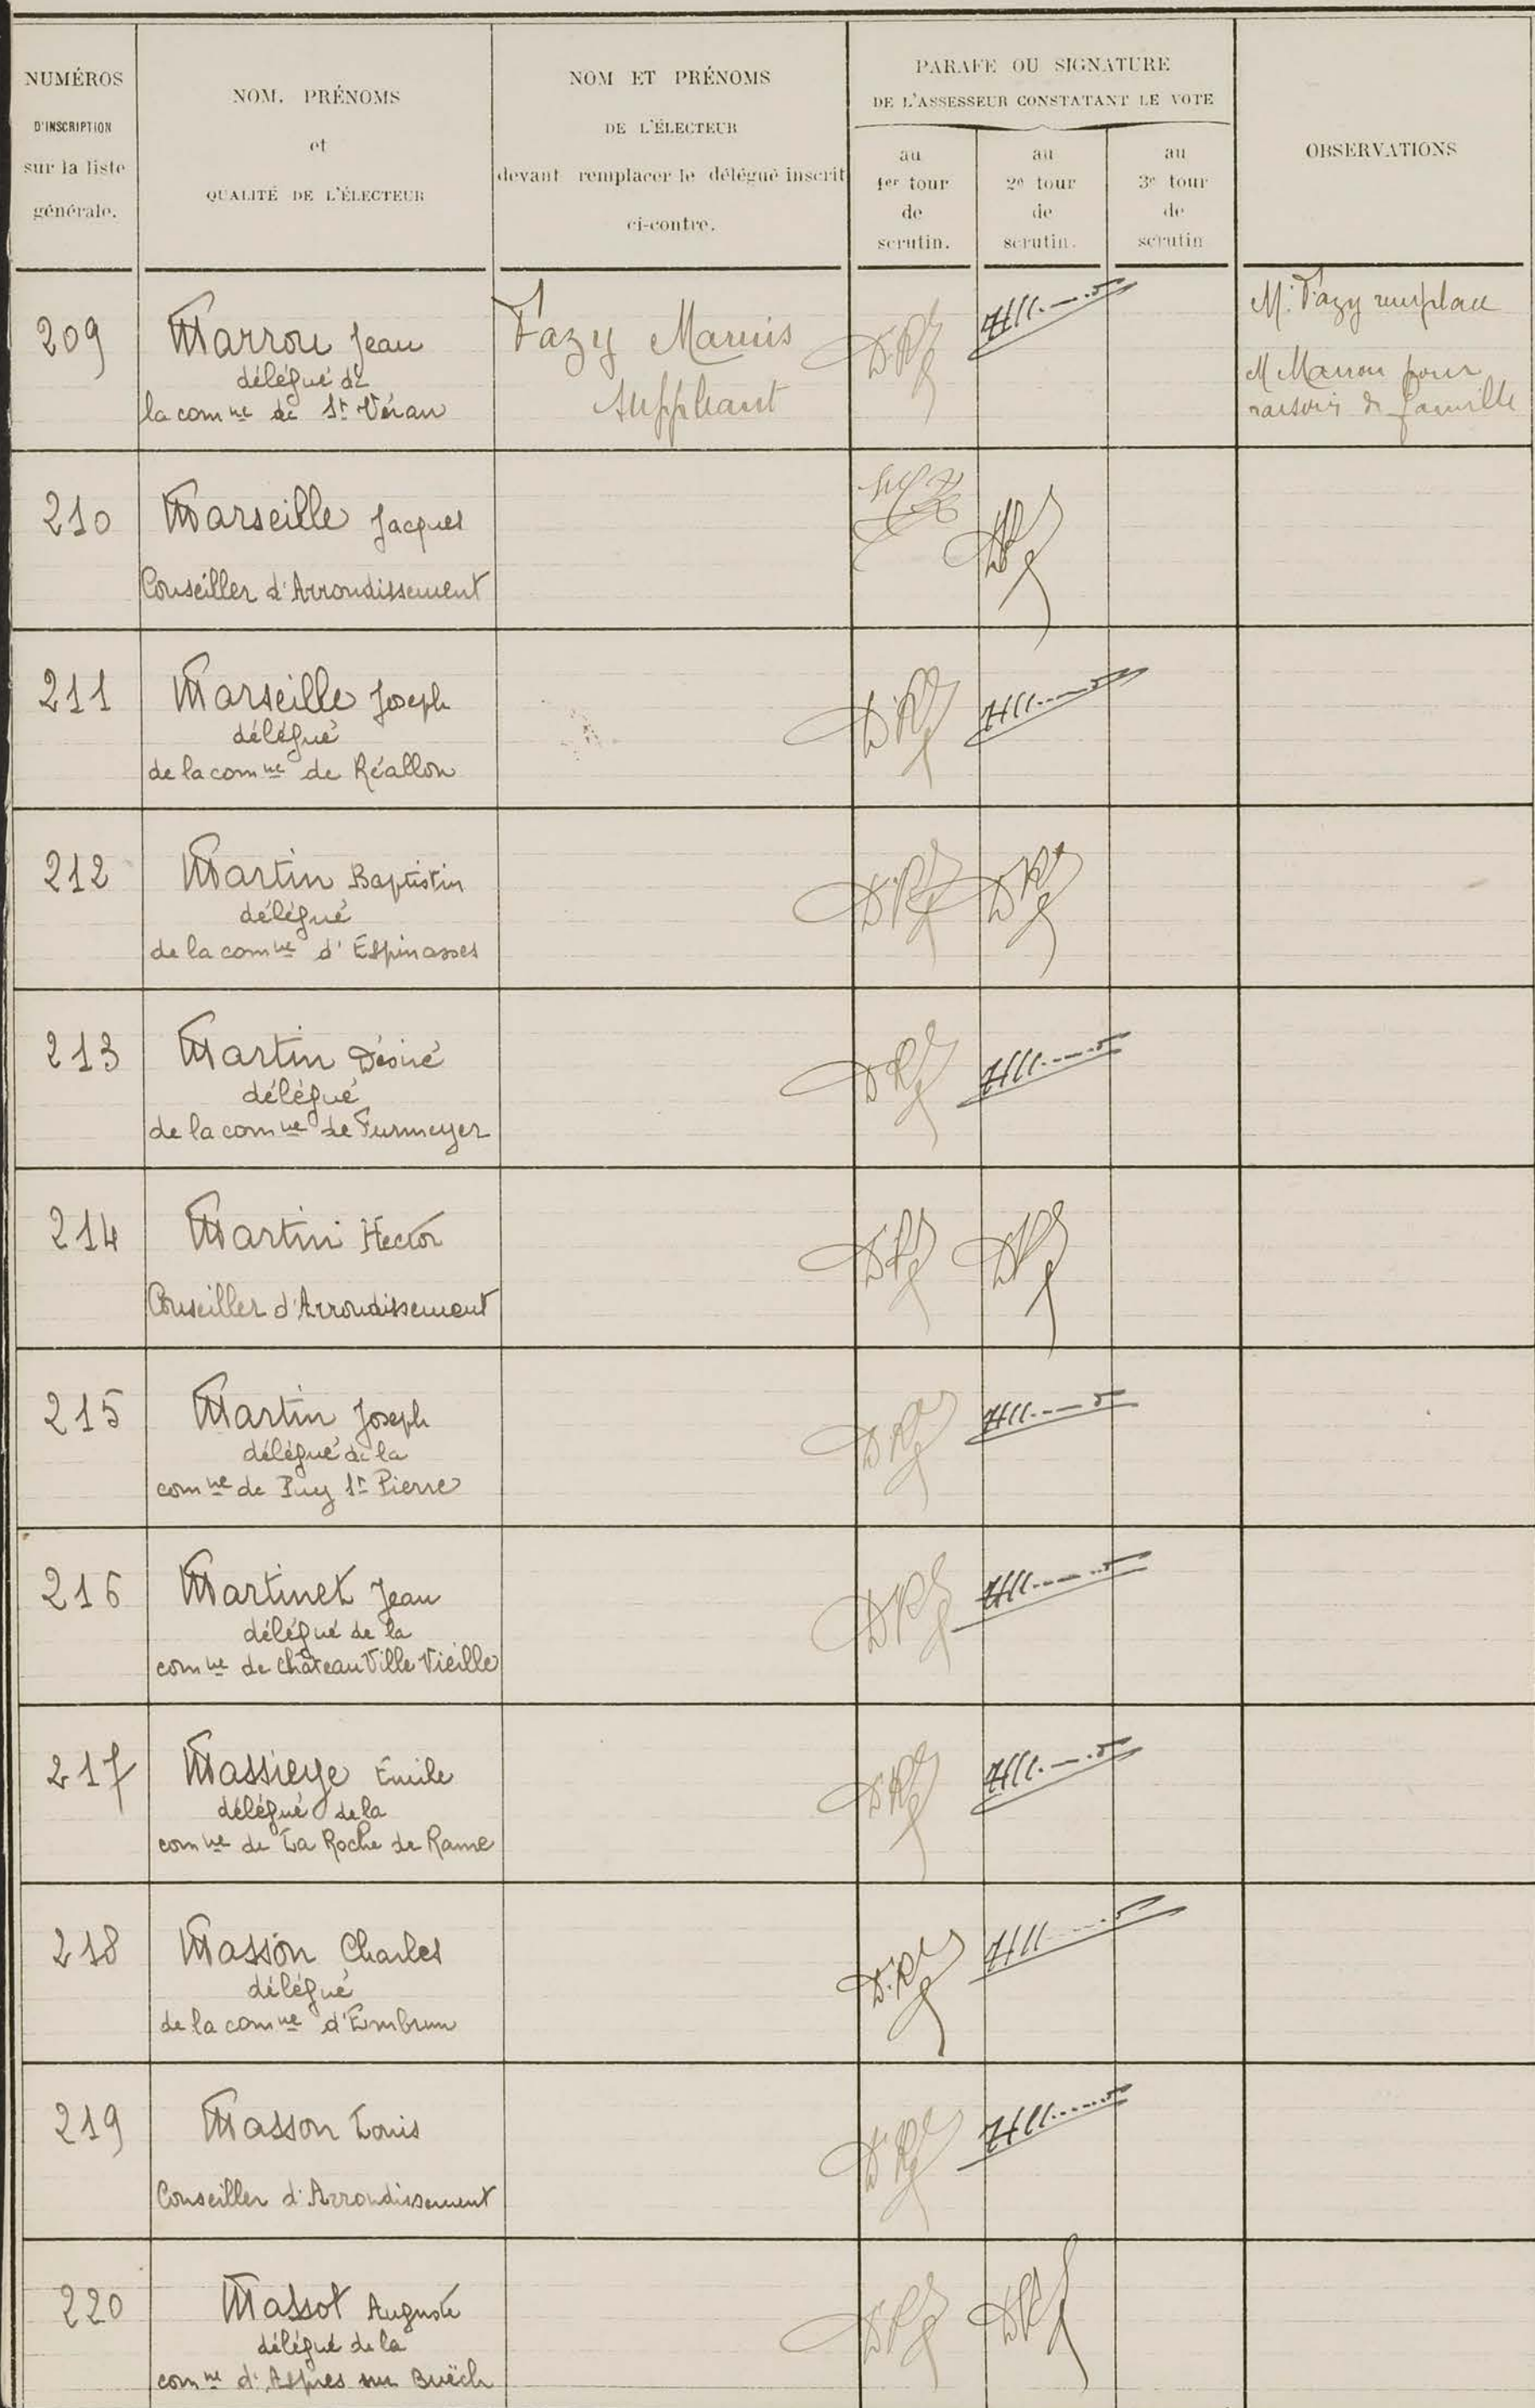 NUMÉROS
D'INSCRIPTION
sur la liste
générale.
NOM. PRÉNOMS
et
QUALITÉ DE L'ÉLECTEUR
NOM ET PRÉNOMS
DE L'ÉLECTEUR
devant remplacer le délégué inscrit
ci-contre.
PARAFE OU SIGNATURE
DE L'ASSESSEUR CONSTATANT LE VOTE
au
1er tour
de
scrutin.
au
2e tour
de
scrutin.
au
3e tour
de
scrutin
OBSERVATIONS
209
Marrou Jean
délégué de
la comne de St Véran
Fazy Marius
suppléant
M. Fazy remplace
M Marrou pour
raisons de famille
210
Marseille Jacques
Conseiller d'Arrondissement
211
Marseille Joseph
délégué
de la comne de Réallon
212
Martin Baptistin
délégué
de la comne d'Espinasses
213
Martin Désiré
délégué
de la comne de Furmeyer
214
Martin Hector
Conseiller d'Arrondissement
215
Martin Joseph
délégué de la
comne de Puy St Pierre
216
Martinet Jean
délégué de la
comne de Château Ville Vieille
217
Massieye Emile
délégué de la
comne de La Roche de Rame
218
Masson Charles
délégué
de la comne d'Embrun
219
Masson Louis
Conseiller d'Arrondissement
220
Massot Auguste
délégué de la
comne d'Aspres sur Buëch